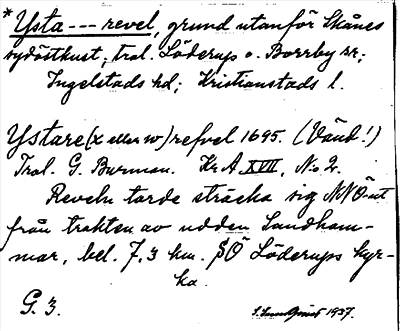 * Ysta --- revel, grund utanför Skånes
sydöstkust; trol. Löderups o. Borrby sr;
Ingelstads hd; Kristianstads l.
Ystare (x eller w) refvel 1695. (Vänd!)
Trol. G. Burman. Kr.A. XVII, No 2.
Reveln torde sträcka sig NNÖ-ut
från trakten av udden Sandham-
mar, bel. 7,3 km. SÖ Löderups kyr-
ka.
G. 3.
1937.